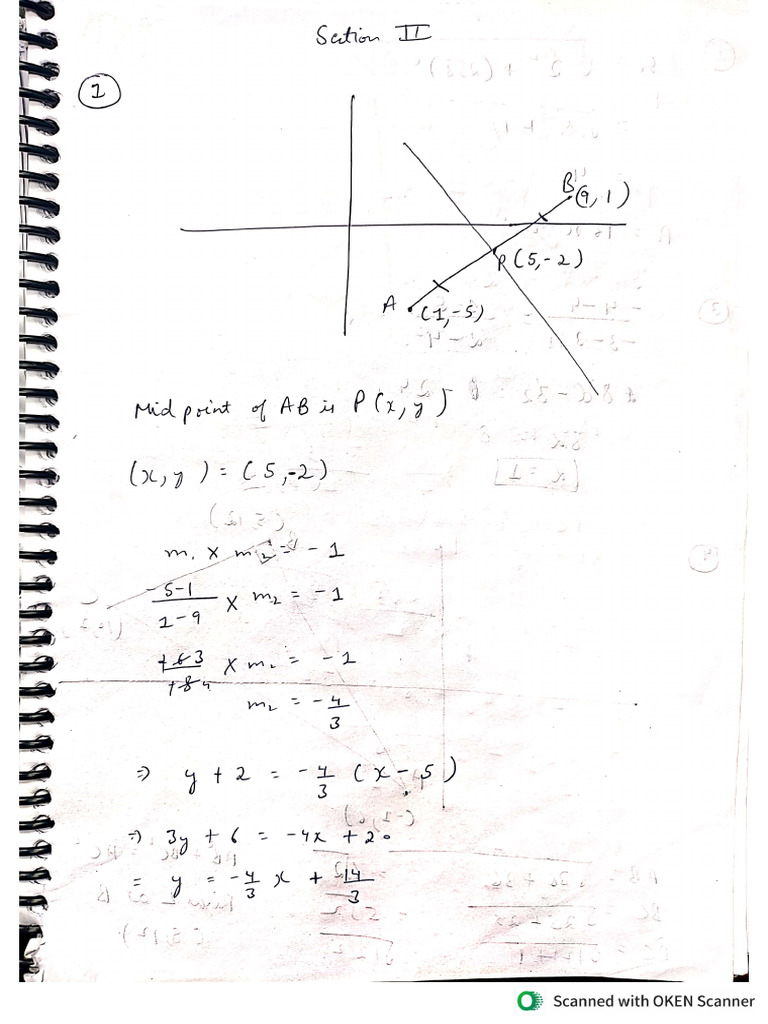 Section II
1
B (9, 1)
P (5, -2)
A (1, -5)
Mid point of AB is P(x, y)
(x, y) = (5, -2)
m₁ × m₂ = -1
-5-1/1-9 × m₂ = -1
+6 3/+8 4 × m₂ = -1
m₂ = -4/3
⇒ y + 2 = -4/3 (x - 5)
⇒ 3y + 6 = -4x + 20
= y = -4/3 x + 14/3
Scanned with OKEN Scanner